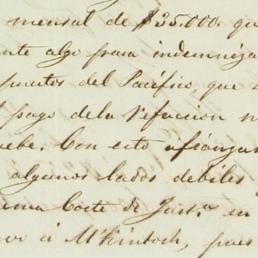 mensal de $35.000. qu
nte algo para indemniza
puertos del Pacífico, que s
pago dela Refaccion n
ebe. Con esto afianzar
algunos lados debiles
ema Corte de Just.ª en
à M'Kintoch, pues